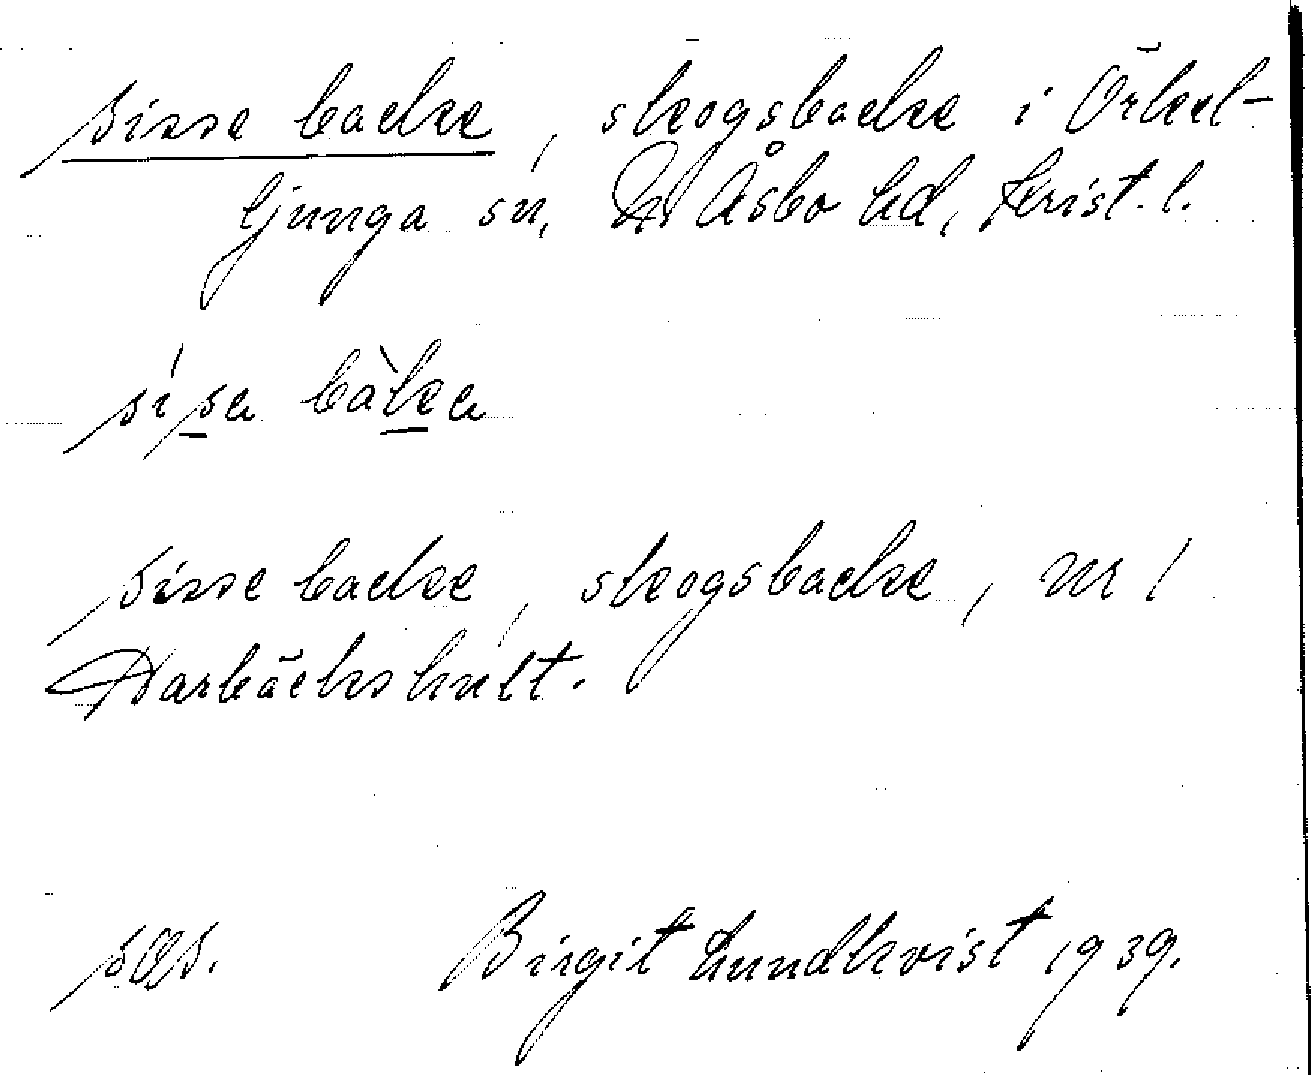 sisse backe, skogsbacke i Örkel-
ljunga sn, N Åsbo hd, Krist. l.
sisa bàka
sisse backe, skogsbacke, nr 1
Harbäckshult.
sås. Birgit Lundkvist 1939.